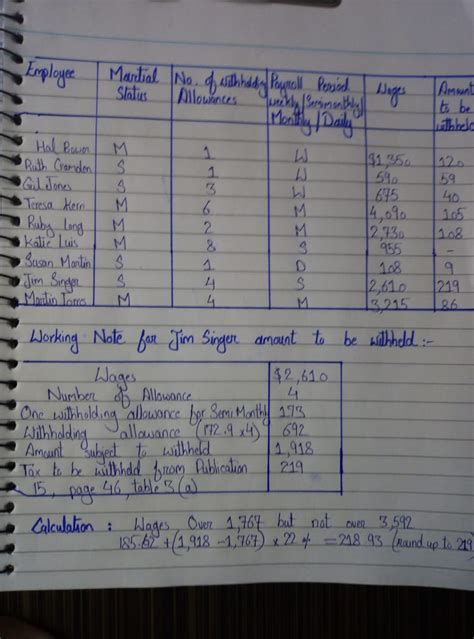 Employee | Martial Status | No. of withholding Allowances | Payroll Period weekly/Semimonthly/Monthly/Daily | Wages | Amount to be withheld
Hal Bower | M | 1 | W | $1,350 | 120
Ruth Cramden | S | 1 | W | 590 | 59
Gil Jones | S | 3 | W | 675 | 40
Teresa Kern | M | 6 | M | 4,090 | 105
Ruby Long | M | 2 | M | 2,730 | 108
Katie Luis | M | 8 | S | 955 | -
Susan Martin | S | 1 | D | 108 | 9
Jim Singer | S | 4 | S | 2,610 | 219
Martin Torres | M | 4 | M | 3,215 | 86
Working Note for Jim Singer amount to be withheld :-
Wages | $2,610
Number of Allowance | 4
One withholding allowance for Semi Monthly | 173
Withholding allowance (172.9 x4) | 692
Amount subject to withheld | 1,918
Tax to be withheld from Publication | 219
15, page 46, table 3(a)
Calculation : Wages Over 1,767 but not over 3,592
185.62 + (1,918 - 1,767) x 22 % = 218.93 (round up to 219)